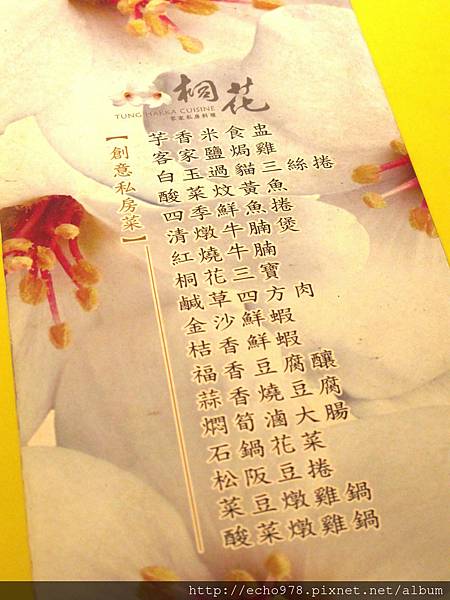 桐花
TUNG HAKKA CUISINE
客家私房料理
【創意私房菜】
芋香米食盅
客家鹽焗雞
白玉過貓三絲捲
酸菜炆黃魚
四季鮮魚捲
清燉牛腩煲
紅燒牛腩
桐花三寶
鹹草四方肉
金沙鮮蝦
桔香鮮蝦
福香豆腐釀
蒜香燒豆腐
燜筍滷大腸
石鍋花菜
松阪豆捲
菜豆燉雞鍋
酸菜燉雞鍋
http://echo978.pixnet.net/album